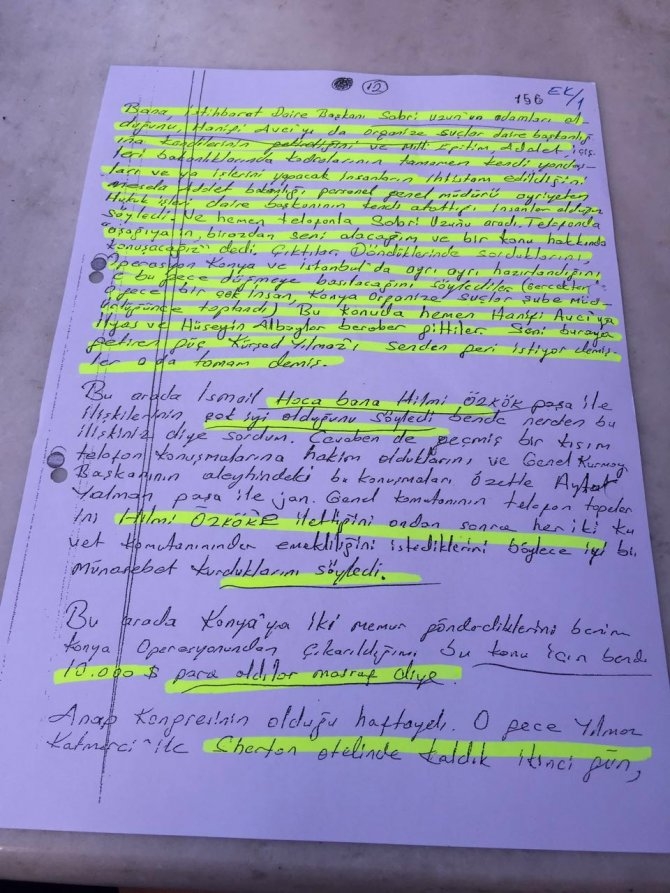 12
156
EK/1
Bana, istihbarat Daire Başkanı Sabri Uzun'un adamları ol-
duğunu, Hanifi Avcı'yı da organize suçlar daire başkanlığı
ına kendilerinin getirdiğini ve Milli Eğitim, Adalet, içiş-
leri bakanlıklarında kadrolarının tamamen kendi yandaş-
ları ve ya işlerini yapacak insanların ihtilam edildiğini
mesela adalet bakanlığı personel genel müdürü ayriyeten
Hukuk işleri daire başkanının kendi atattığı insanlar olduğu
söyledi. Ve hemen telefonla Sabri Uzunu aradı. Telefonda
"aşağıya in, birazdan seni alacağım ve bir konu hakkında
konuşacağız" dedi. Çıktılar. Döndüklerinde sorduklarını
Operasyon Konya ve İstanbul'da ayrı ayrı hazırlandığını
e bu gece düğmeye basılacağını söylediler (Gerçekten
o gece bir çok insan, Konya Organize Suçlar Şube Müd-
ürlüğünce toplandı) Bu konuda hemen Hanifi Avcı'ya
İlyas ve Hüseyin Albaylar beraber gittiler. Seni buraya
getiren güç Kürşad Yılmaz'ı senden geri istiyor demiş-
ler o da tamam demiş.
Bu arada İsmail Hoca bana Hilmi ÖZKÖK paşa ile
ilişkilerinin çok iyi olduğunu söyledi bende nerden bu
ilişkiniz diye sordum. Cevaben de geçmiş bir kısım
telefon konuşmalarına hakim olduklarını ve Genel Kurmay
Başkanının aleyhindeki bu konuşmaları özetle Aytaç
Yalman paşa ile jan. Genel komutanının telefon tapeler
ini Hilmi ÖZKÖK'E ilettiğini ondan sonra her iki ku
vet komutanınından emekliliğini istediklerini böylece iyi bi
münasebet kurduklarını söyledi.
Bu arada Konya'ya iki memur gönderdiklerini benim
Konya Operasyonundan çıkarıldığımı bu konu için bende
10.000 $ para aldılar masraf diye.
Anap Kongresinin olduğu haftaydı. O gece Yılmaz
Katmerci ile Sherton otelinde kaldık ikinci gün,